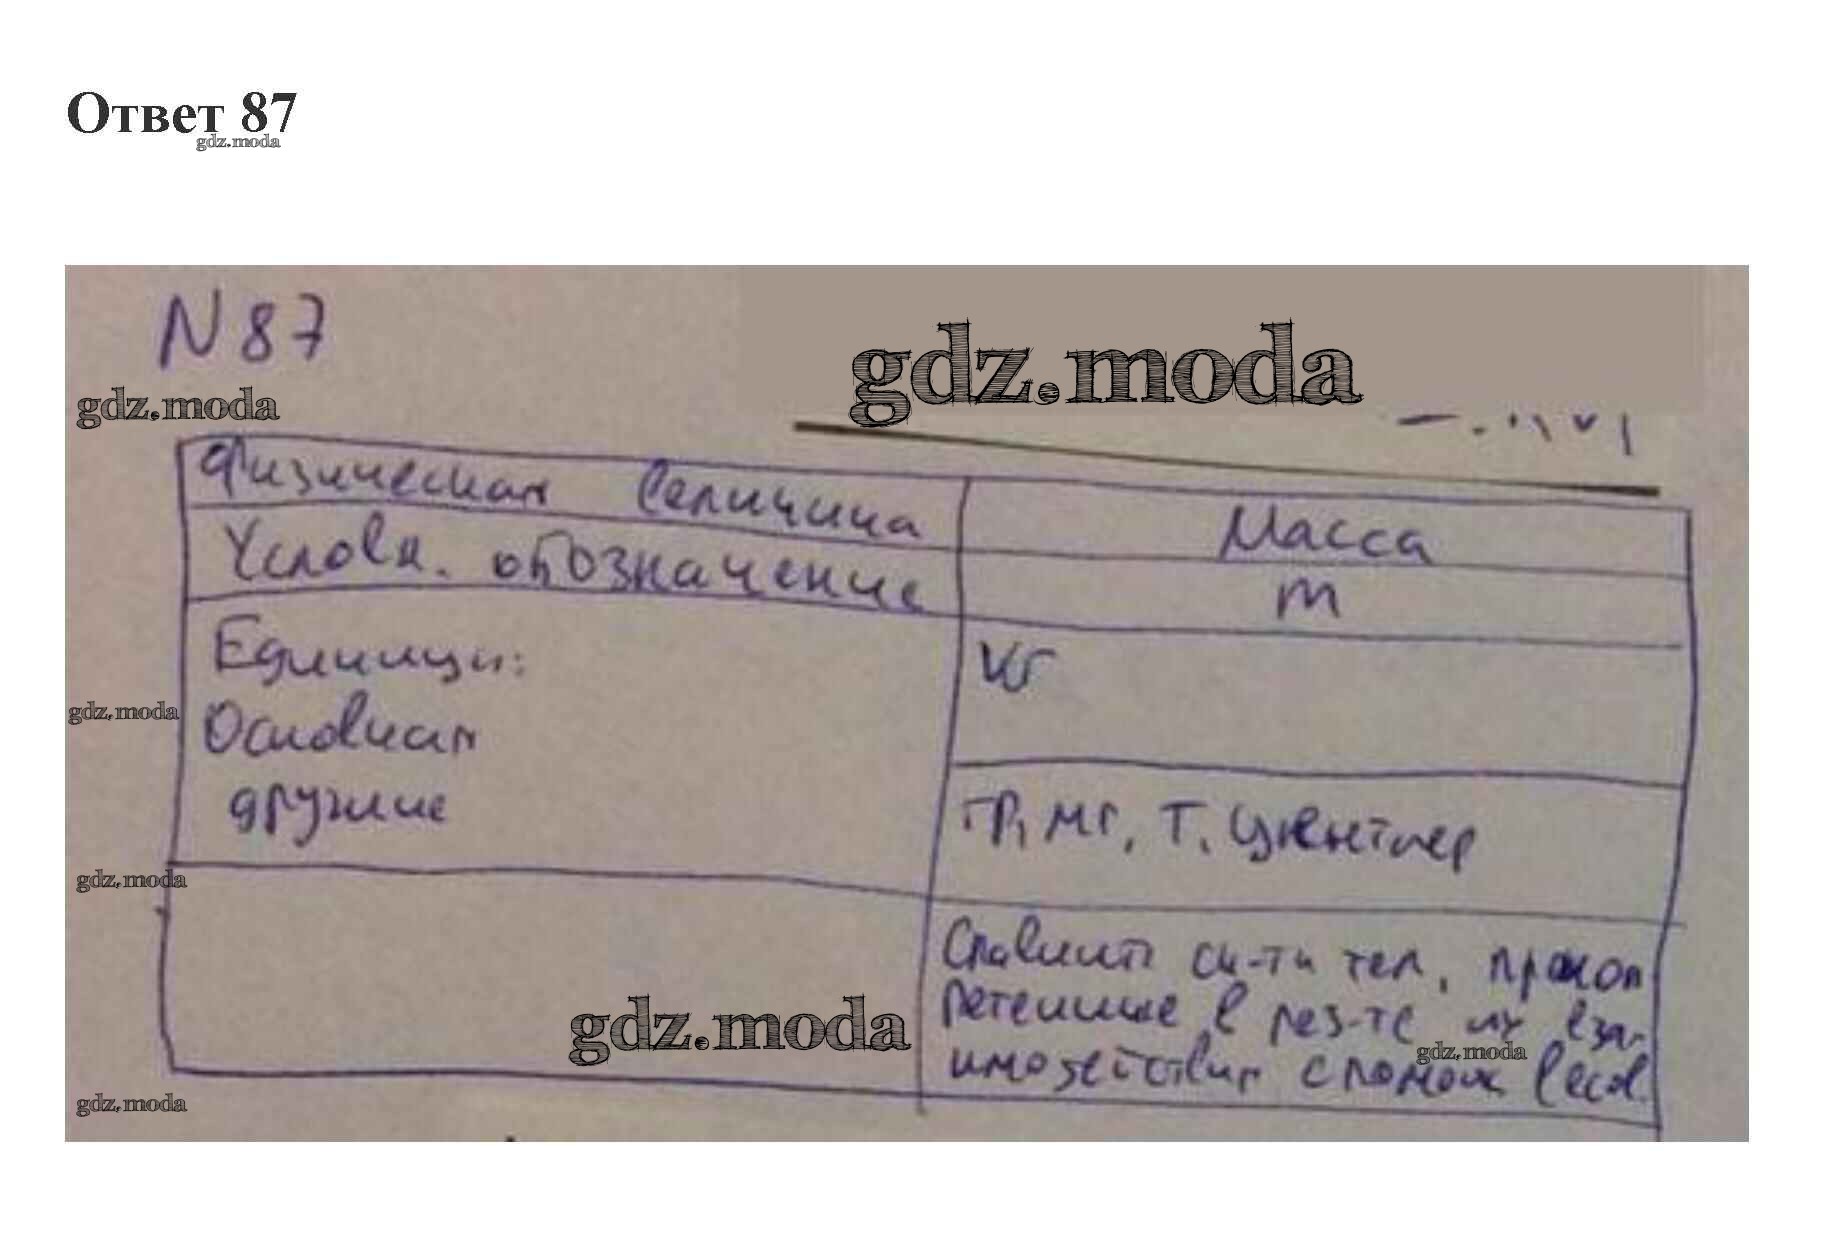 Ответ 87
gdz.moda
N 87
gdz.moda
gdz.moda
Физическая величина Масса
Условн. обозначение m
Единицы: кг
gdz.moda
Основная
другие гр, мг, т, центнер
gdz.moda
Сравнить ск-ти тел,
в рез-те их вза-
gdz.moda
gdz.moda
имодействия с помощ весов
gdz.moda